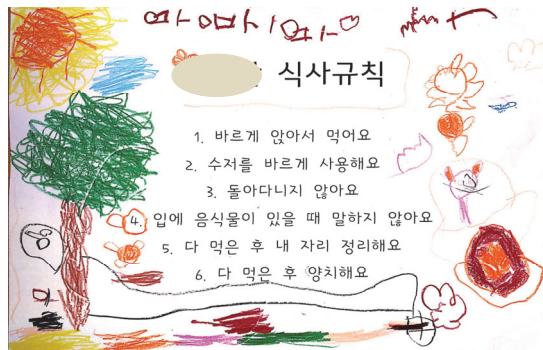 식사규칙
1. 바르게 앉아서 먹어요
2. 수저를 바르게 사용해요
3. 돌아다니지 않아요
4. 입에 음식물이 있을 때 말하지 않아요
5. 다 먹은 후 내 자리 정리해요
6. 다 먹은 후 양치해요